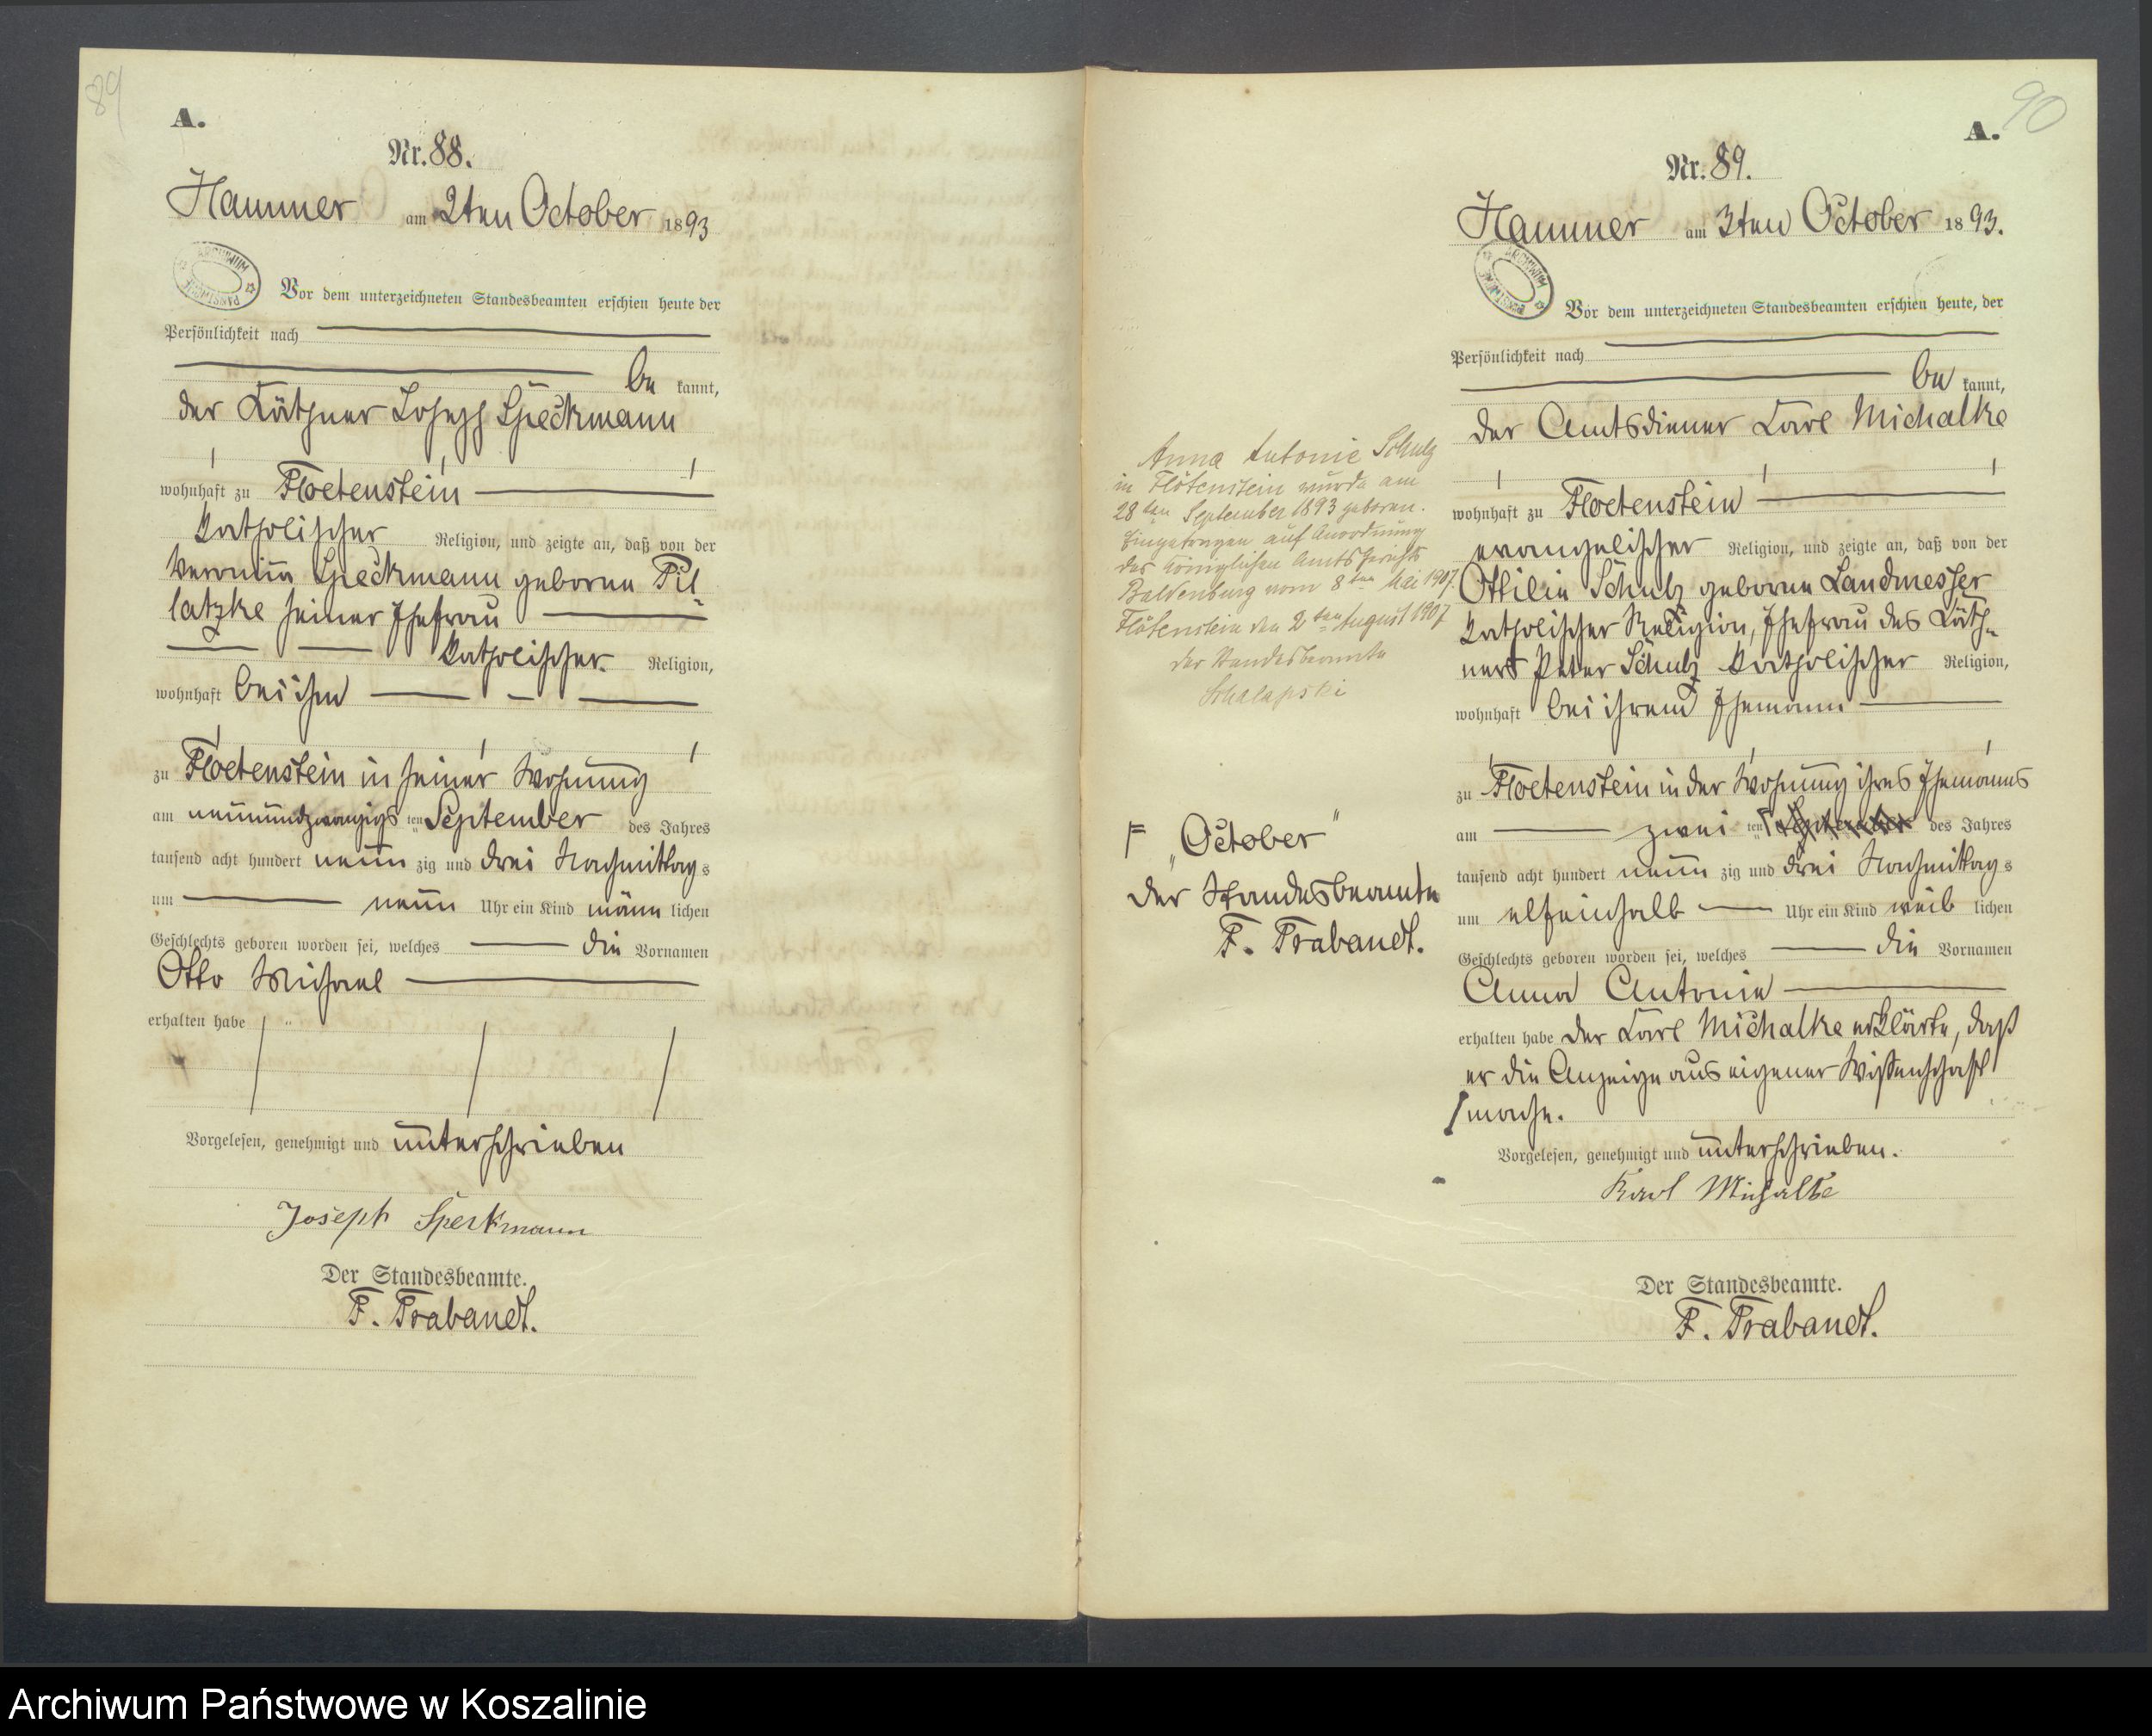 89
A.
Nr. 88.
Hammer am 2ten October 1893
ARCHIWUM PAŃSTWOWE
Vor dem unterzeichneten Standesbeamten erschien heute der
Persönlichkeit nach
be kannt,
der Käthner Joseph Speckmann
wohnhaft zu Floetenstein
katholischer Religion, und zeigte an, daß von der
Veronica Speckmann geborene Pil-
latzke seiner Ehefrau
katholischer Religion,
wohnhaft bei ihm
zu Floetenstein in seiner Wohnung
am neunundzwanzigs ten September des Jahres
tausend acht hundert neun zig und drei Nachmittag s
um neun Uhr ein Kind männ lichen
Geschlechts geboren worden sei, welches die Vornamen
Otto Michael
erhalten habe
Vorgelesen, genehmigt und unterschrieben
Joseph Speckmann
Der Standesbeamte.
F. Trabandt.
90
A.
Nr. 89.
Hammer am 3ten October 1893.
ARCHIWUM PAŃSTWOWE
Vor dem unterzeichneten Standesbeamten erschien heute, der
Persönlichkeit nach
be kannt,
der Amtsdiener Carl Michalke
wohnhaft zu Floetenstein
evangelischer Religion, und zeigte an, daß von der
Ottilie Schulz geborene Landmesser
katholischer Religion, Ehefrau des Käth-
ners Peter Schulz katholischer Religion,
wohnhaft bei ihrem Ehemann
zu Floetenstein in der Wohnung ihres Ehemanns
am zwei ten September des Jahres
tausend acht hundert neun zig und drei Nachmittag s
um elfeinhalb Uhr ein Kind weib lichen
Geschlechts geboren worden sei, welches die Vornamen
Anna Antonie
erhalten habe der Carl Michalke erklärte, daß
er die Anzeige aus eigener Wissenschaft
mache.
Vorgelesen, genehmigt und unterschrieben.
Karl Michalke
Der Standesbeamte.
F. Trabandt.
Anna Antonie Schulz
in Flötenstein wurde am
28ten September 1893 geboren.
Eingetragen auf Anordnung
des Königlichen Amtsgerichts
Baldenburg vom 8ten Mai 1907.
Flötenstein den 2ten August 1907
der Standesbeamte
Schalapski
„October"
der Standesbeamte
F. Trabandt.
Archiwum Państwowe w Koszalinie